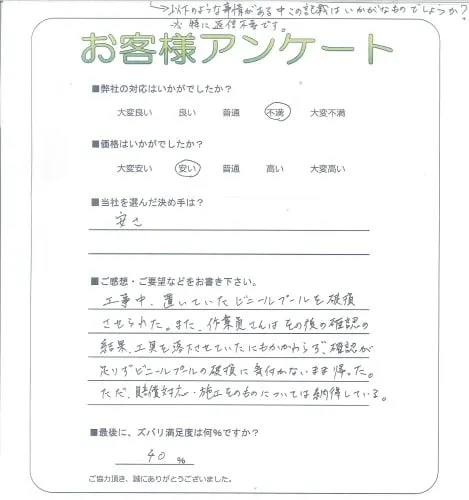 →以下のような事情がある中この記載はいかがなものでしょうか?
※特に返信不要です。
お客様アンケート
■弊社の対応はいかがでしたか？
大変良い 良い 普通 不満 大変不満
■価格はいかがでしたか？
大変安い 安い 普通 高い 大変高い
■当社を選んだ決め手は？
安さ
■ご感想・ご要望などをお書き下さい。
工事中、置いていたビニールプールを破損
させられた。また、作業員さんはその後の確認の
結果、工具を落下させていたにもかかわらず、確認が
足りずビニールプールの破損に気付かないまま帰った。
ただ、賠償対応・施工そのものについては納得している。
■最後に、ズバリ満足度は何%ですか？
40 %
ご協力頂き、誠にありがとうございました。